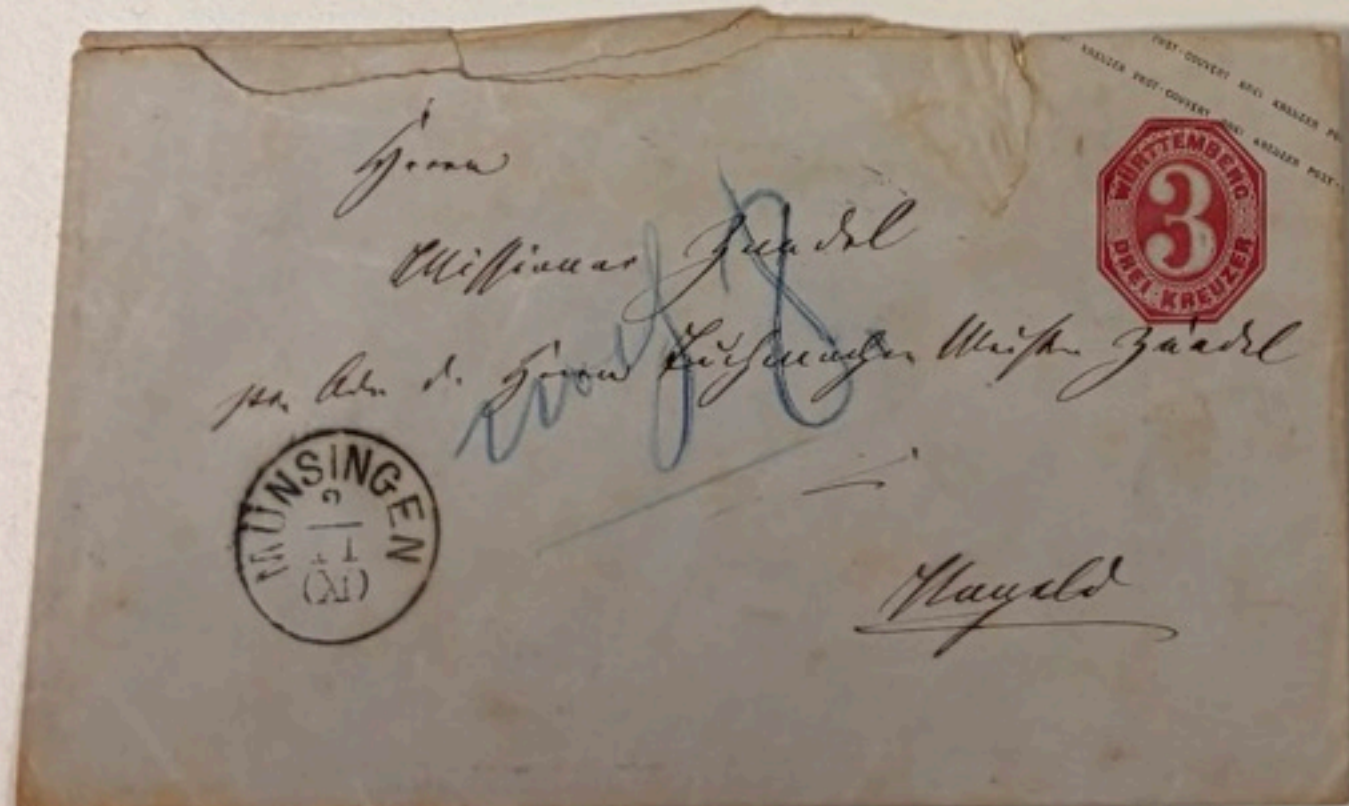 POST-COUVERT DREI KREUZER PO
KREUZER POST-COUVERT DREI KREUZER POST-
WÜRTTEMBERG
3
DREI KREUZER
Herrn
Missionar Zündel
pr. Adr. d. Herrn Tuchmacher Meister Zündel
Nagold
MÜNSINGEN